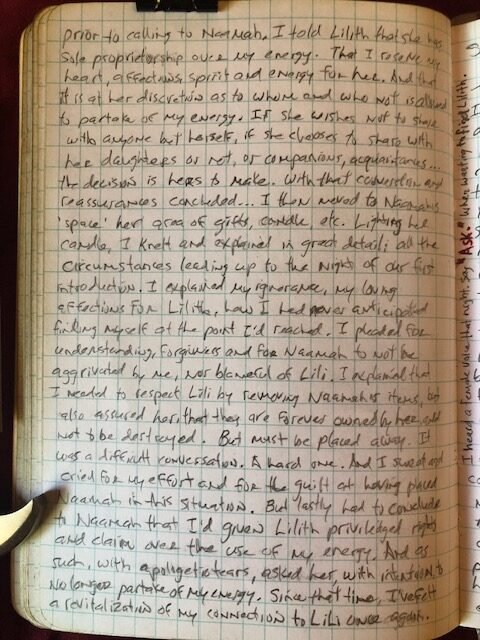 prior to calling to Naamah. I told Lilith that she has
sole proprietorship over my energy. That I reserve my
heart, affections, spirit and energy for her. And that
it is at her discretion as to whom and who not is allowed
to partake of my energy. If she wishes not to share
with anyone but herself, if she chooses to share with
her daughters or not, or companions, acquaintances...
the decision is hers to make. With that conversation and
reassurances concluded... I then moved to Naamah's
'space' her area of gifts, candle, etc. Lighting her
candle, I knelt and explained in great detail all the
circumstances leading up to the night of our first
introduction. I explained my ignorance, my loving
affections for Lilith, how I had never anticipated
finding myself at the point I'd reached. I pleaded for
understanding, forgivness and for Naamah to not be
aggrivated by me, nor blameful of Lili. I explained that
I needed to respect Lili by removing Naamah's items, but
also assured her that they are forever owned by her and
not to be destroyed. But must be placed away. It
was a difficult conversation. A hard one. And I sweat and
cried for my effort and for the guilt at having placed
Naamah in this situation. But lastly had to conclude
to Naamah that I'd given Lilith priviledged rights
and claim over the use of my energy. And as
such, with apologetic tears, asked her, with intention, to
no longer partake of my energy. Since that time, I've felt
a revitalization of my connection to Lili once again.
I heard a female voice that night say "Ask." when wanting to find Lilith.